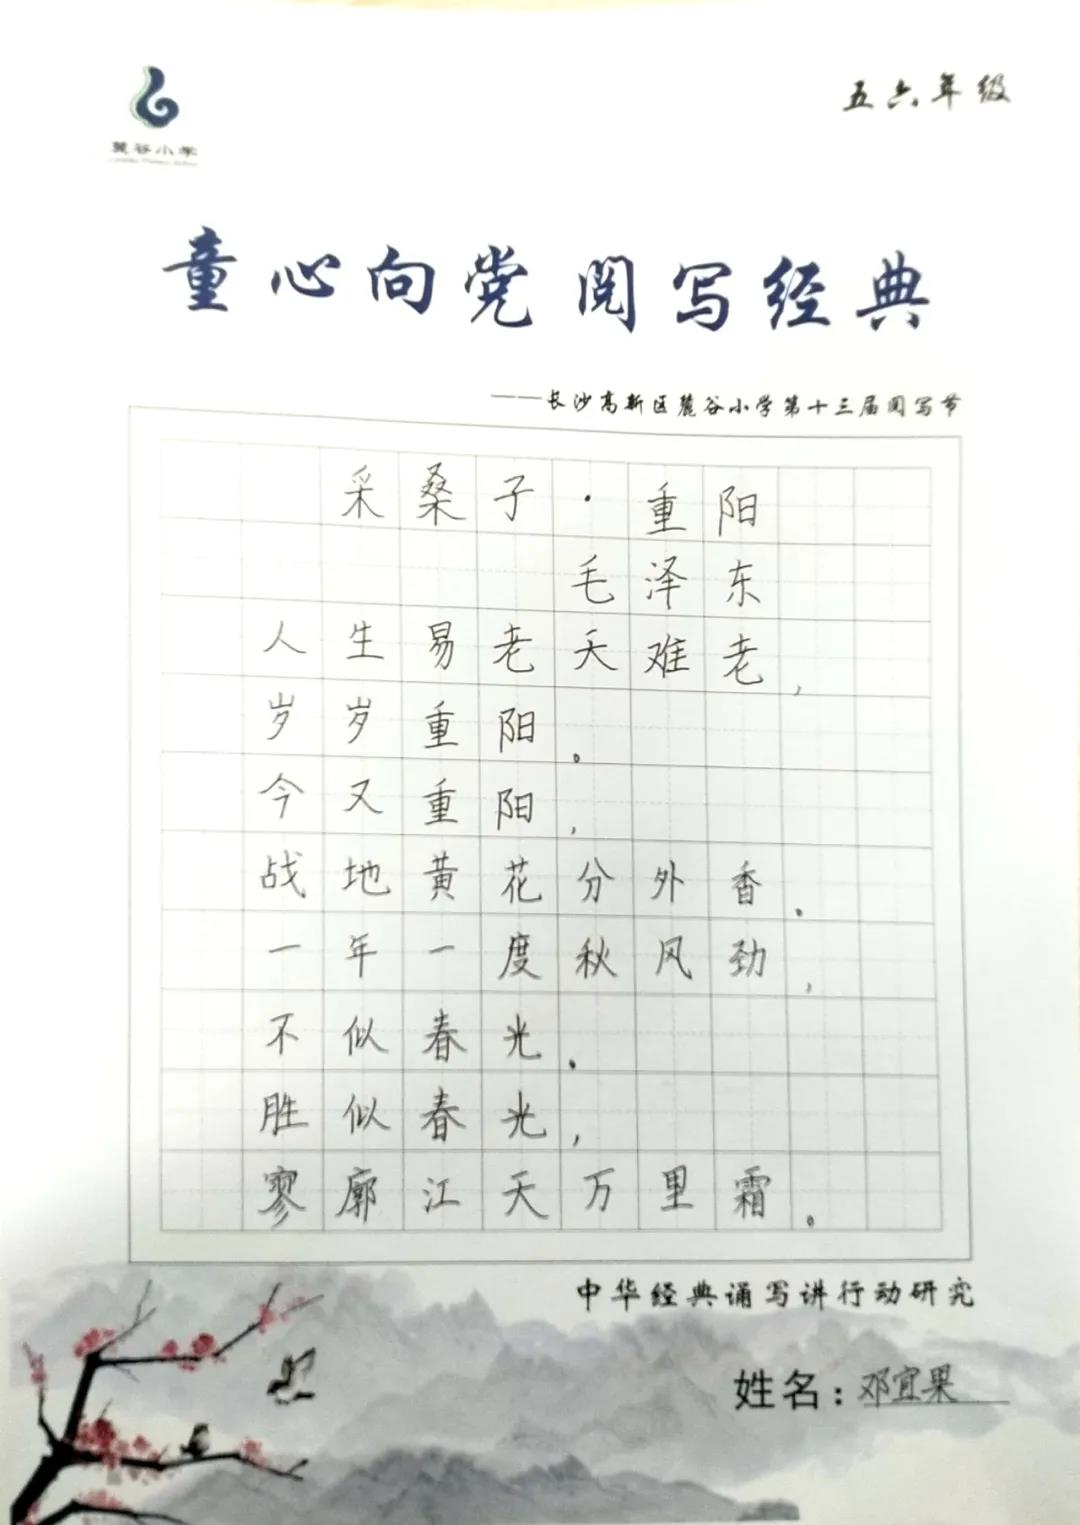 五六年级
麓谷小学
童心向党 阅写经典
——长沙高新区麓谷小学第十三届阅写节
采桑子·重阳
毛泽东
人生易老天难老，
岁岁重阳。
今又重阳，
战地黄花分外香。
一年一度秋风劲，
不似春光。
胜似春光，
寥廓江天万里霜。
中华经典诵写讲行动研究
姓名：邓宜果